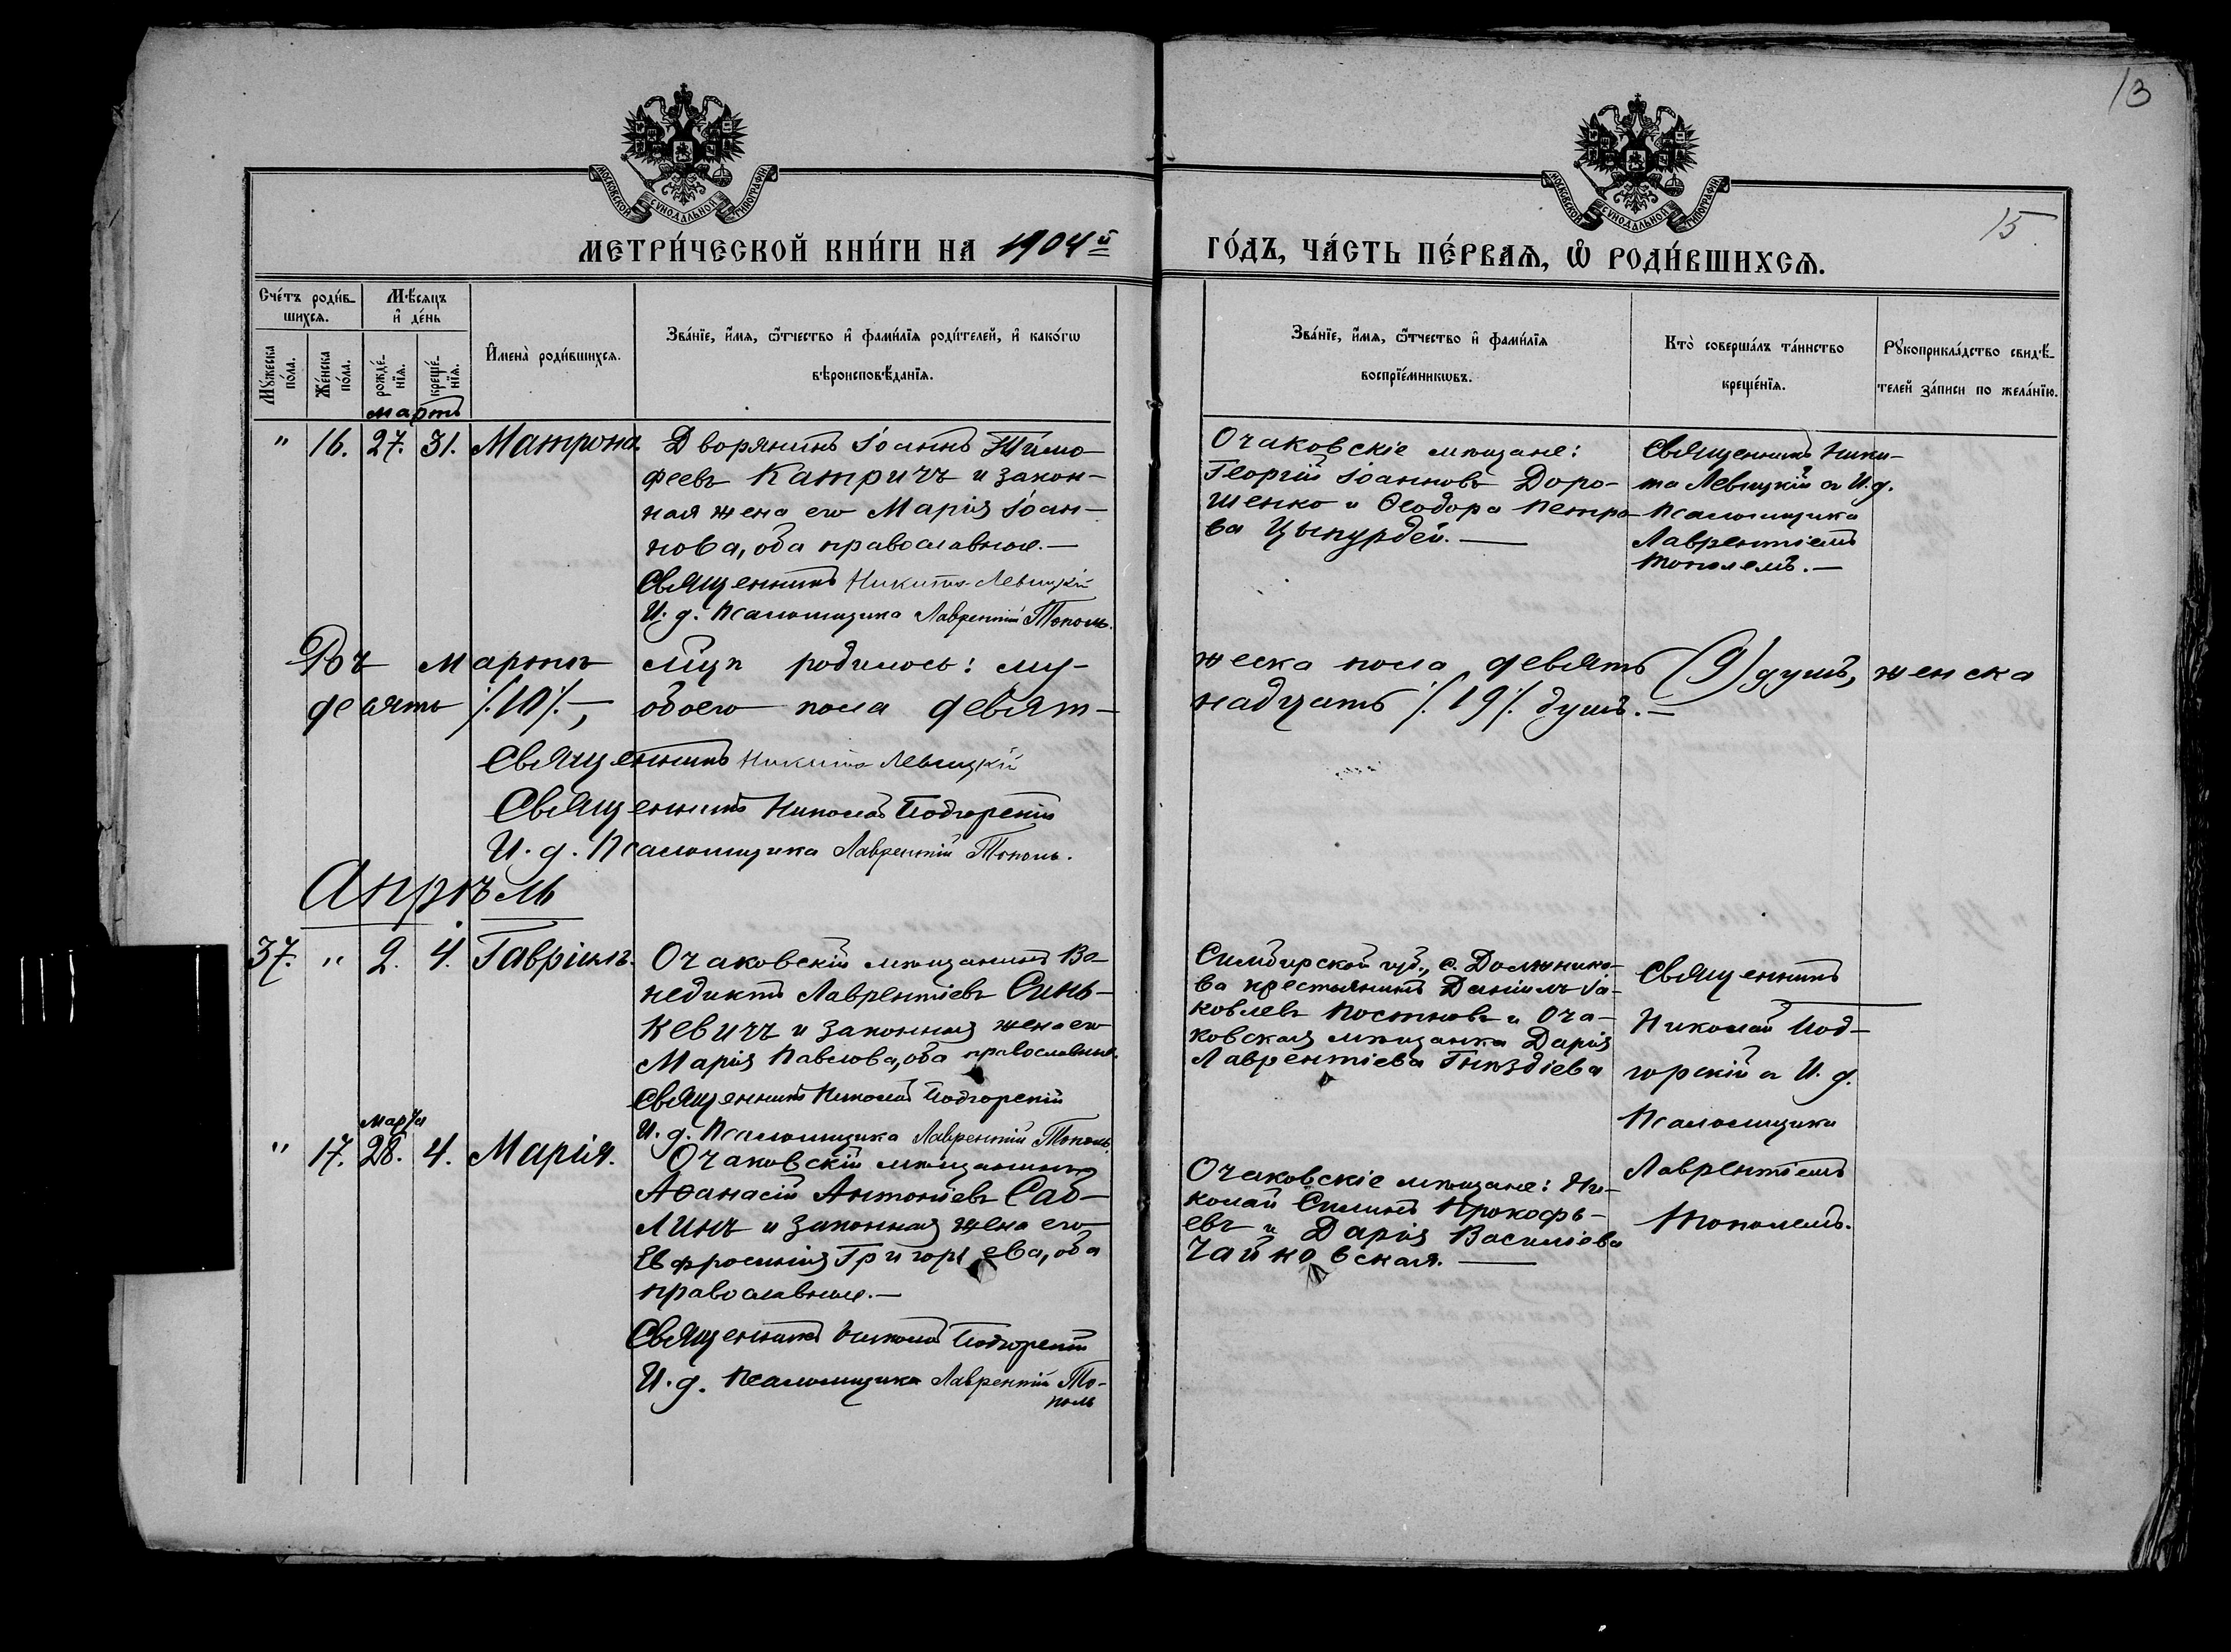 13
МОСКОВСКОЙ СѴНОДАЛЬНОЙ ТИПОГРАФІИ
МОСКОВСКОЙ СѴНОДАЛЬНОЙ ТИПОГРАФІИ
15.
МЕТРИ́ЧЕСКОЙ КНИ́ГИ НА 1904й
ГО́ДЪ, ЧА́СТЬ ПЕ́РВАѦ, Ѡ҆ РОДИ́ВШИХСѦ.
Сче́тъ роди́в-
шихсѧ.
Мѣ́сѧцъ
и҆ де́нь
Мꙋ́жеска
по́ла.
Же́нска
по́ла.
рожде́-
нїѧ.
креще́-
нїѧ.
И҆мена̀ роди́вшихсѧ.
Зва́нїе, и҆́мѧ, ѻ҆́тчество и҆ фамѝлїѧ роди́телей, и҆ како́гѡ
вѣроисповѣ́данїѧ.
Зва́нїе, и҆́мѧ, ѻ҆́тчество и҆ фамѝлїѧ
воспрїе́мникѡвъ.
Кто̀ соверша́лъ та́инство
креще́нїѧ.
Рꙋкоприкла́дство свидѣ́-
телей за́писи по жела́нїю.
Мартъ
" 16. 27. 31. Матрона.
Дворянинъ Іоаннъ Тимо-
феевъ Катричъ и закон-
ная жена его Марія Іоан-
нова, оба православные.—
Священникъ Никита Левицкій
И. д. Псаломщика Лаврентій Тополь.
Очаковскіе мѣщане:
Георгій Іоанновъ Доро-
шенко и Ѳеодора Петро-
ва Цыпурдей.—
Священникъ Ники-
та Левицкій съ И. д.
Псаломщика
Лаврентіемъ
Тополемъ.—
Въ мартѣ мѣц родилось: му-
жеска пола девять (9) душъ, женска
десять /:10:/—, обоего пола девят-
надцать /:19:/ душъ.—
Священникъ Никита Левицкій
Священникъ Николай Подгорскій
И. д. Псаломщика Лаврентій Тополь.
Апрѣль
37. " 2. 4. Гавріилъ.
Очаковскій мѣщанинъ Ве-
недиктъ Лаврентіевъ Синь-
кевичъ и законная жена его
Марія Павлова, оба православные.
Священникъ Николай Подгорскій
И. д. Псаломщика Лаврентій Тополь.
Симбирской губ., с. Должнико-
ва крестьянинъ Даніилъ Іа-
ковлевъ Постновъ и Оча-
ковская мѣщанка Дарія
Лаврентіева Гнѣздіева
Священникъ
Николай Под-
горскій съ И. д.
Псаломщика
Лаврентіемъ
Тополемъ.
Марта
" 17. 28. 4. Марія.
Очаковскій мѣщанинъ
Аѳанасій Антоніевъ Саб-
линъ и законная жена его
Евфросинія Григоріева, оба
православные.—
Священникъ Николай Подгорскій
И. д. Псаломщика Лаврентій То-
поль
Очаковскіе мѣщане: Ни-
колай Силинъ Прокофь-
евъ и Дарія Василіева
Чайковская.—